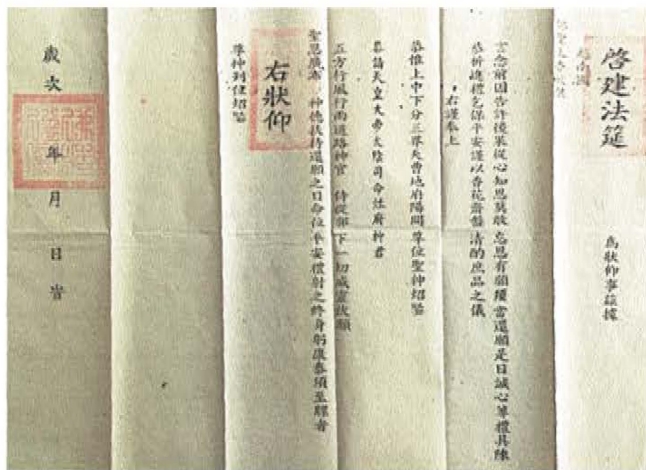 啓建法筵
為狀仰事茲據
越南國
言念前因告許後果從心知恩莫敢忘恩有願須當還願是日誠心筆禮具陳
恭祈進禮乞保平安謹以香花齋盤清酌庶品之儀
右謹奉上
恭惟上中下分三界天曹地府陽間尊位聖神炤鑒
恭請天皇大帝太陰司命灶府神君
五方行風行雨道路神官侍從部下一切威靈
聖恩廣布神德扶持還願之日命位平安禮謝之終身躬康泰須至牒者
右狀仰
尊神到任炤鑒
歲次年月日